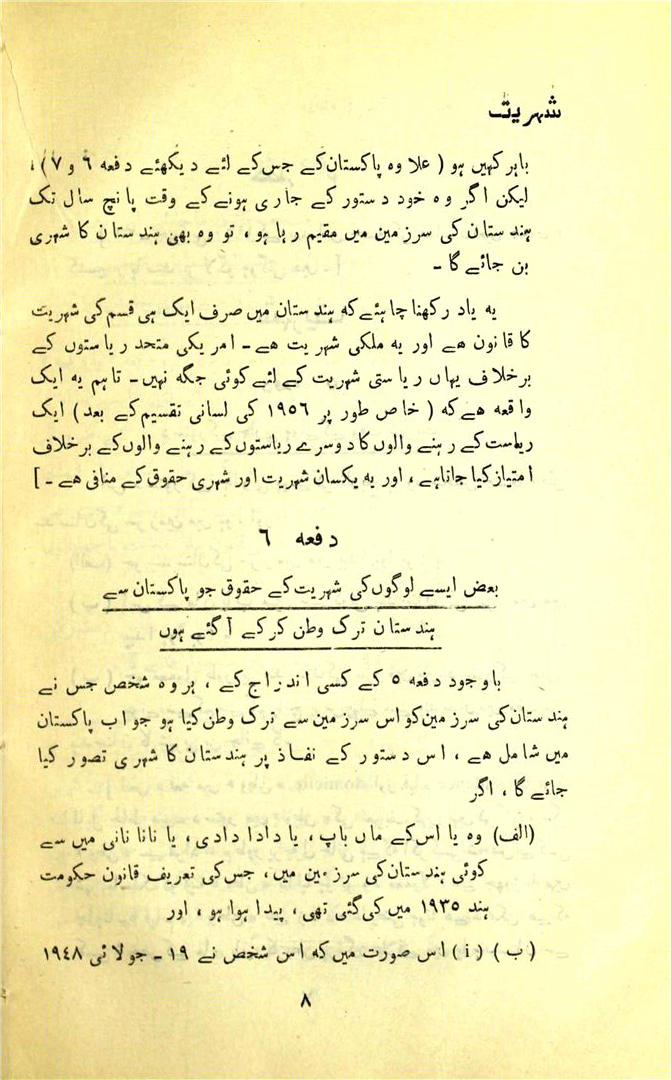 شہریت
باہر کہیں ہو ( علاوہ پاکستان کے جس کے لئے دیکھئے دفعہ ٦ و ٧ ) ،
لیکن اگر وہ خود دستور کے جاری ہونے کے وقت پانچ سال تک
ہندستان کی سرزمین میں مقیم رہا ہو ، تو وہ بھی ہندستان کا شہری
بن جائے گا ۔
یہ یاد رکھنا چاہئے کہ ہندستان میں صرف ایک ہی قسم کی شہریت
کا قانون ھے اور یہ ملکی شہریت ھے ۔ امریکی متحد ریاستوں کے
برخلاف یہاں ریاستی شہریت کے لئے کوئی جگہ نہیں ۔ تاہم یہ ایک
واقعہ ھے کہ ( خاص طور پر ١٩٥٦ کی لسانی تقسیم کے بعد ) ایک
ریاست کے رہنے والوں کا دوسرے ریاستوں کے رہنے والوں کے برخلاف
امتیاز کیا جاتا ہے ، اور یہ یکساں شہریت اور شہری حقوق کے منافی ھے ۔ ]
دفعہ ٦
بعض ایسے لوگوں کی شہریت کے حقوق جو پاکستان سے
ہندستان ترک وطن کر کے آ گئے ہوں
باوجود دفعہ ٥ کے کسی اندراج کے ، ہر وہ شخص جس نے
ہندستان کی سرزمین کو اس سرزمین سے ترک وطن کیا ہو جو اب پاکستان
میں شامل ھے ، اس دستور کے نفاذ پر ہندستان کا شہری تصور کیا
جائے گا ، اگر
(الف) وہ یا اس کے ماں باپ ، یا دادا دادی ، یا نانا نانی میں سے
کوئی ہندستان کی سرزمین میں ، جس کی تعریف قانون حکومت
ہند ١٩٣٥ میں کی گئی تھی ، پیدا ہوا ہو ، اور
( ب ) ( i ) اس صورت میں کہ اس شخص نے ١٩ ۔ جولائی ١٩٤٨
٨